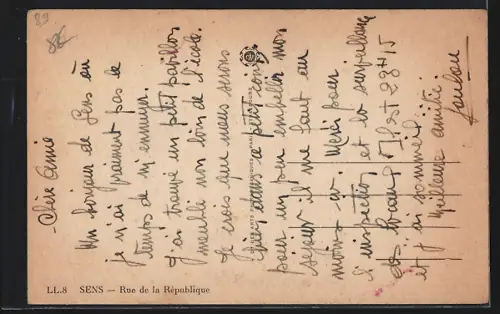 89
Chère Amie
Un bonjour de Sens où
je n'ai vraiment pas le
temps de m'ennuyer.
J'ai trouvé un petit pavillon
meublé non loin de l'école.
Je crois que nous serons
bien dans ce petit coin,
pour un peu embellir mon
séjour il me faut au
moins ça. Merci pour
l'inspection et la surveillance
Il est 23H15
et j'ai sommeil
Meilleure amitié
LL.8 SENS — Rue de la République